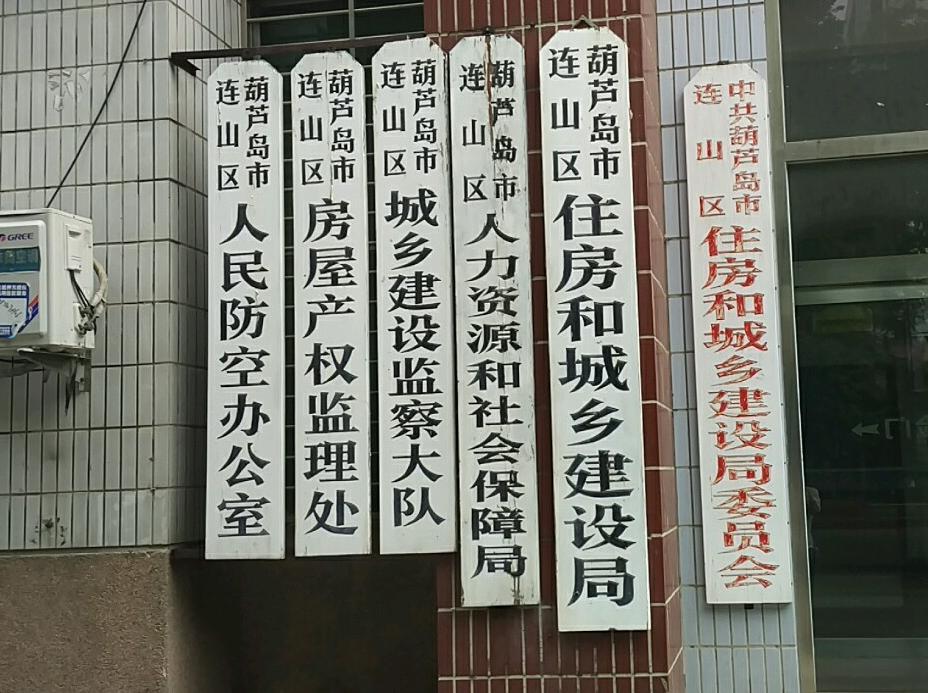 葫芦岛市
连山区
人民防空办公室
葫芦岛市
连山区
房屋产权监理处
葫芦岛市
连山区
城乡建设监察大队
葫芦岛市
连山区
人力资源和社会保障局
葫芦岛市
连山区
住房和城乡建设局
中共葫芦岛市
连山区
住房和城乡建设局委员会
GREE